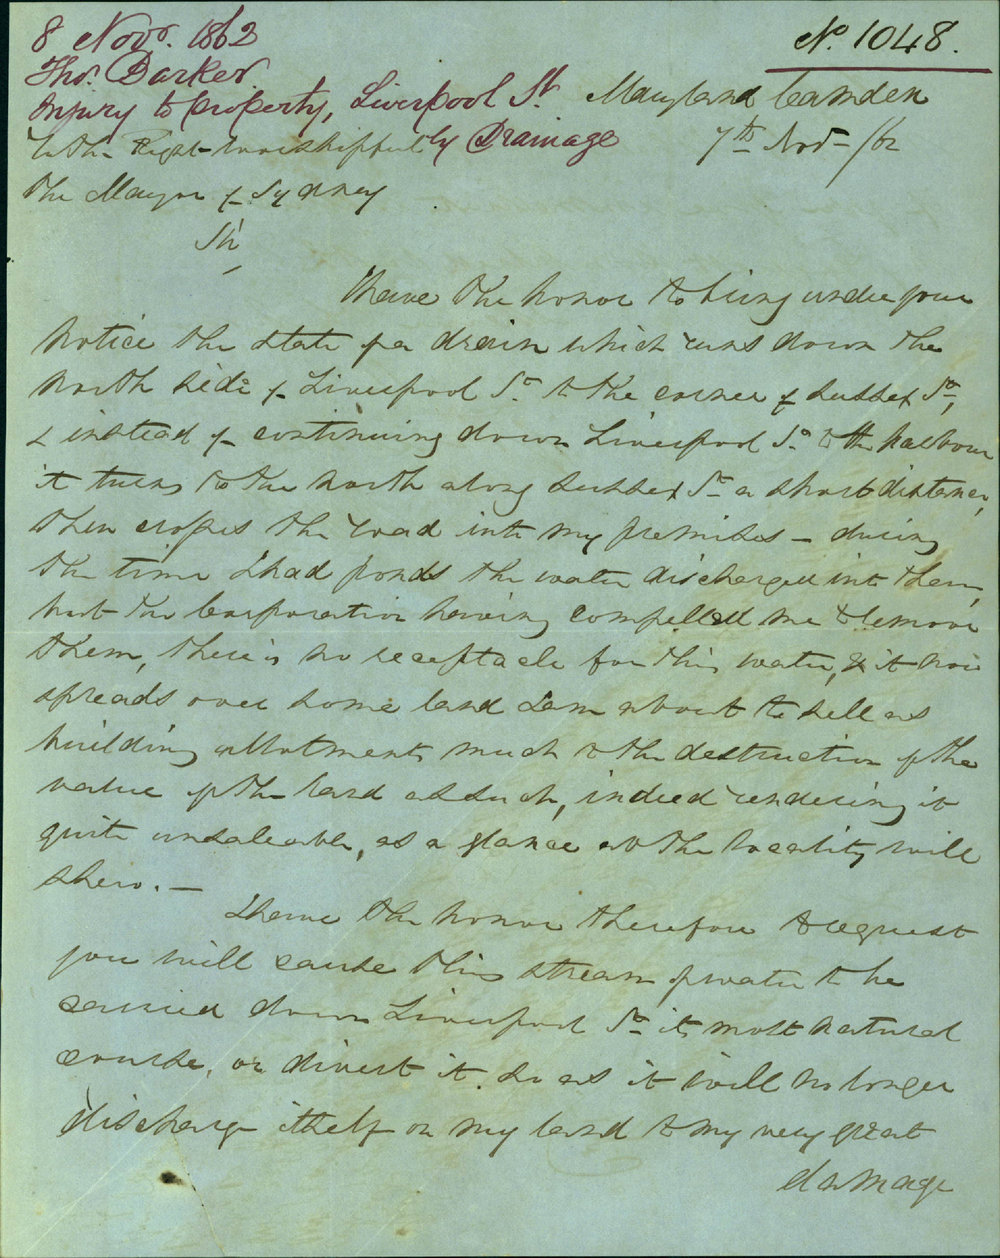 8 Novr. 1862
No. 1048.
Thos. Barker
Injury to property, Liverpool St.
by Drainage
Maryland Camden
7th Novr /62
To the Right Worshipful
the Mayor of Sydney
Sir,
I have the honor to bring under your
notice the state of a drain which runs down the
North side of Liverpool St. to the corner of Sussex St,
& instead of continuing down Liverpool St. to the harbour
it turns to the North along Sussex St a short distance,
then crosses the road into my premises - during
the time I had ponds the water discharged into them,
but the Corporation having compelled me to remove
them, there is no receptacle for this water, & it now
spreads over some land I am about to sell as
building allotments much to the destruction of the
value of the land as such, indeed rendering it
quite unsaleable, as a glance at the locality will
shew. —
I have the honor therefore to request
you will cause this stream of water to be
carried down Liverpool St its most natural
course, or divert it so as it will no longer
discharge itself on my land to my very great
damage